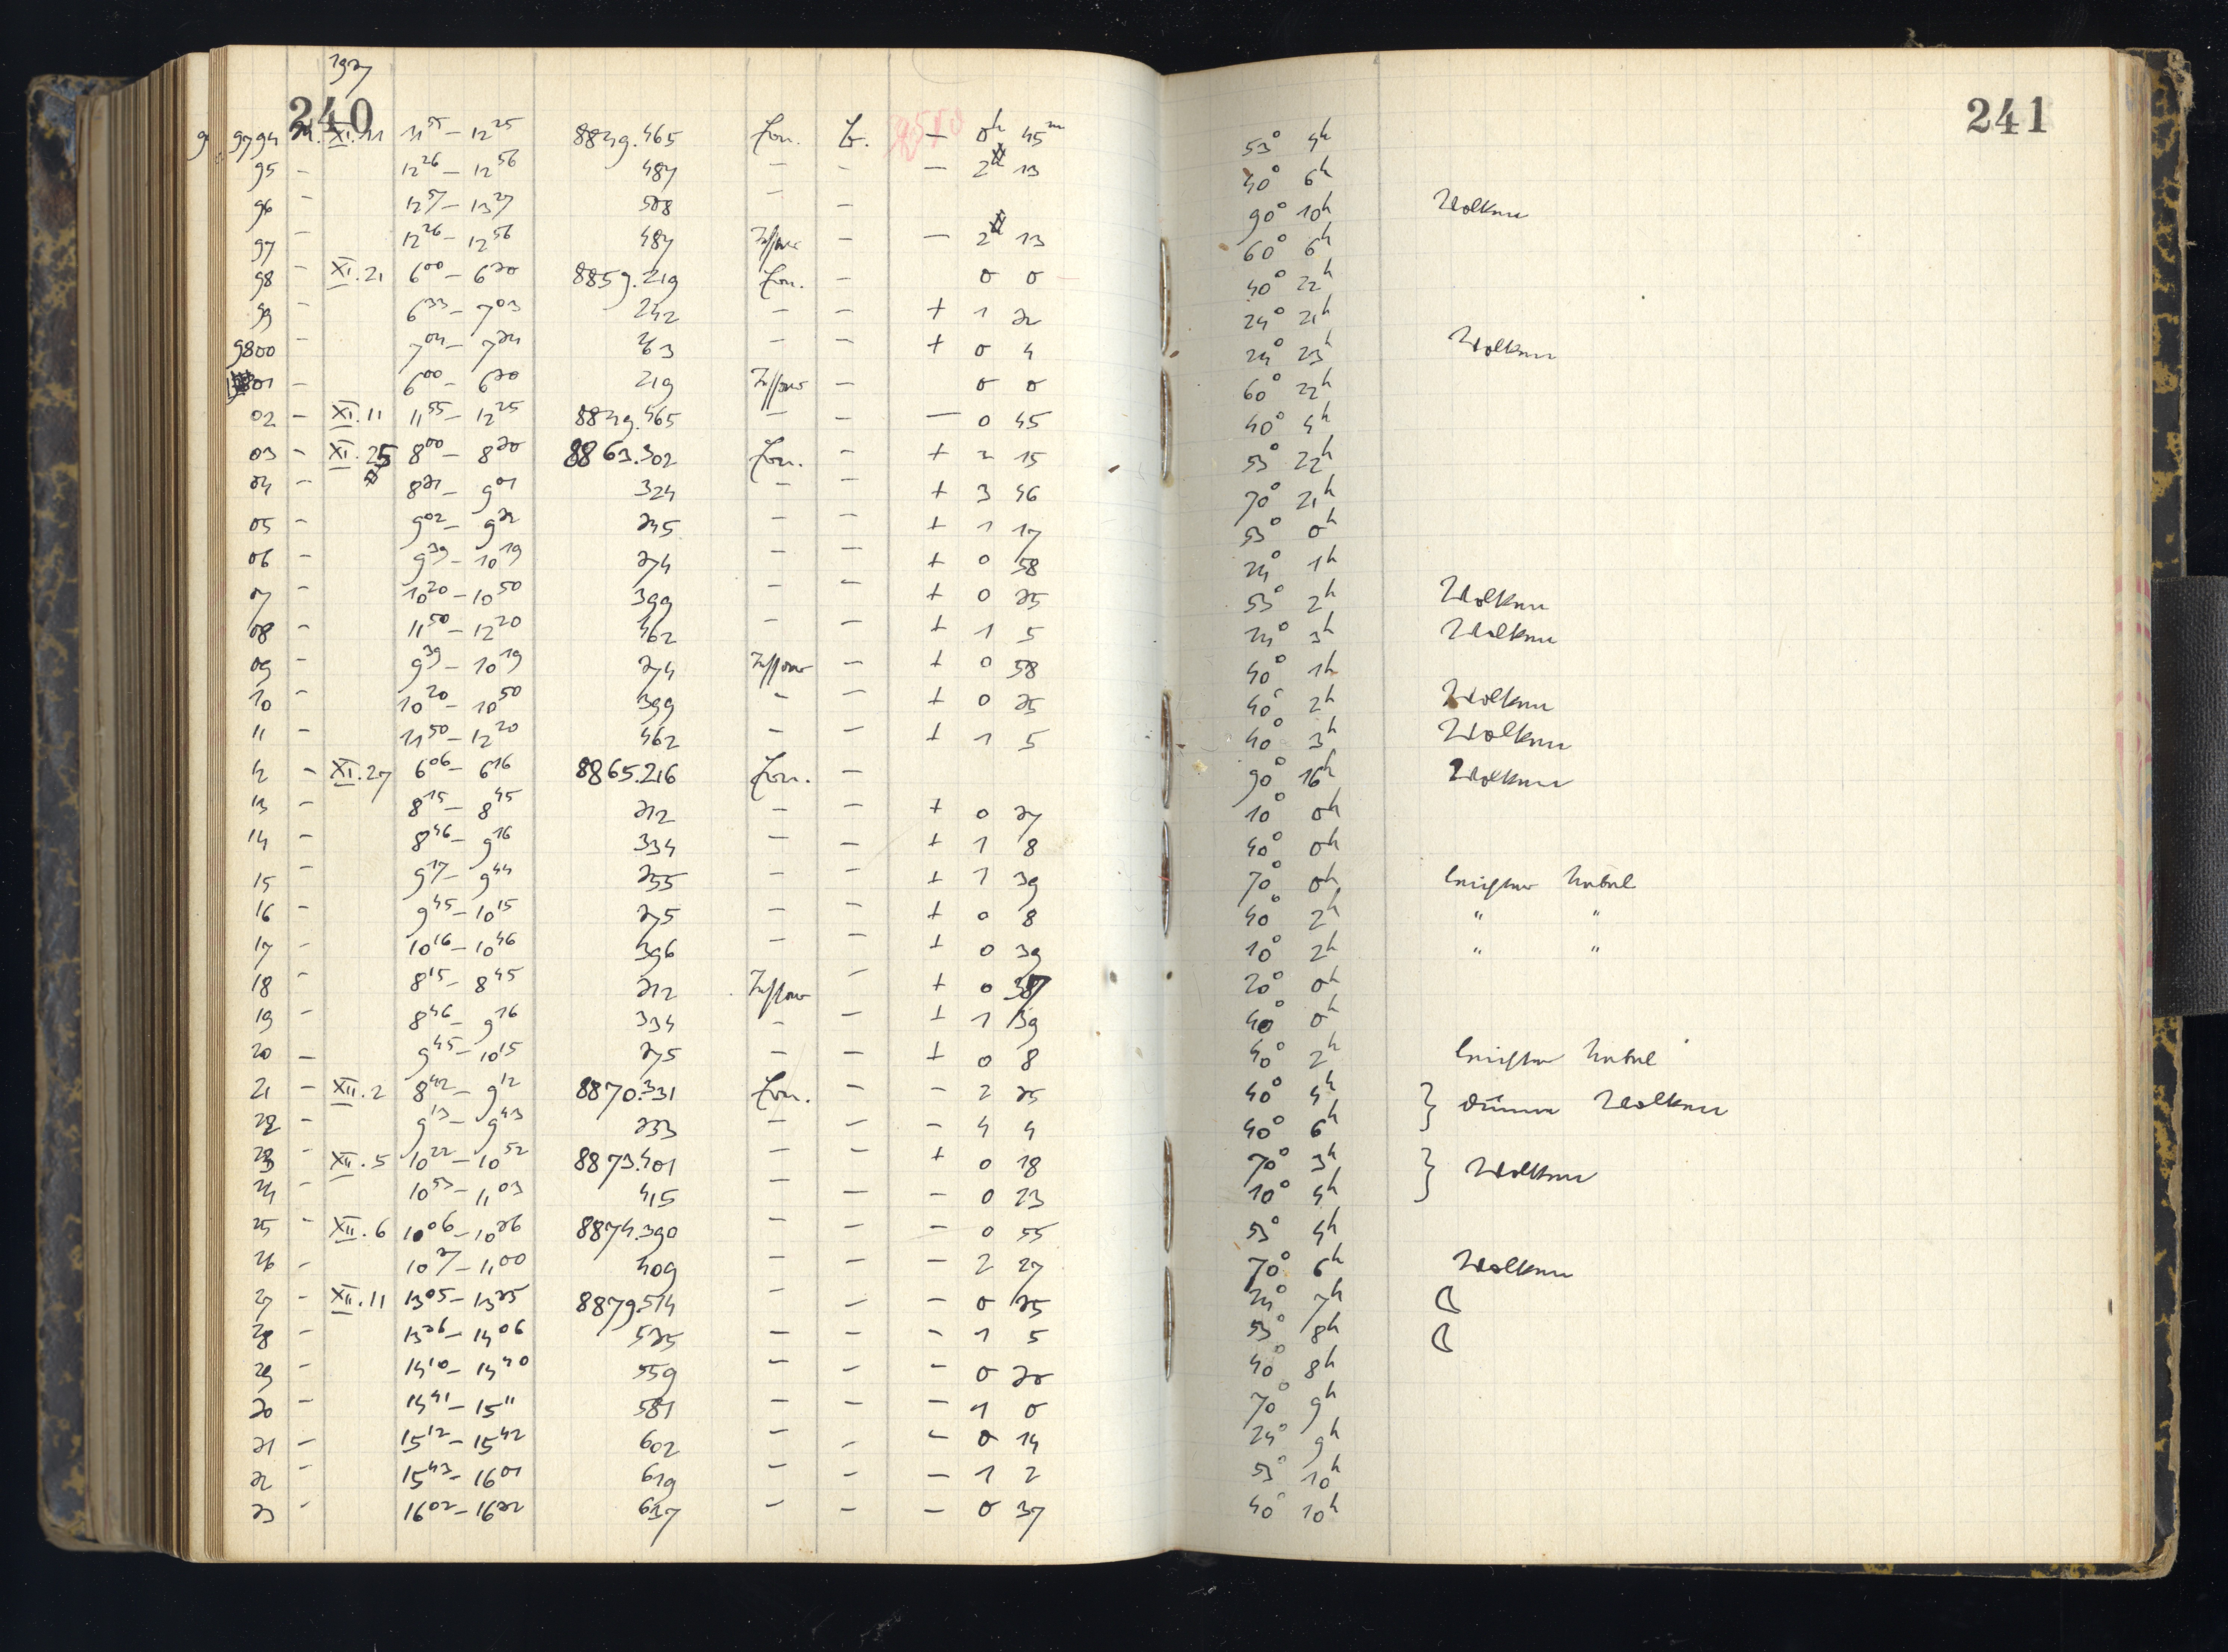 240
1927
9794 XI.11 11⁵⁵ – 12²⁵ 8849.465 – 0ʰ 45ᵐ 53° 4ʰ
95 – 12²⁶ – 12⁵⁶ 487 – – – 2 13 40° 6ʰ
96 – 12⁵⁷ – 13²⁷ 508 – – 90° 10ʰ Wolken
97 – 12²⁶ – 12⁵⁶ 487 – – 2 13 60° 6ʰ
98 – XI.21 6⁰⁰ – 6³⁰ 8859.219 – 0 0 40° 22ʰ
99 – 6³³ – 7⁰³ 242 – – + 1 32 24° 21ʰ
9800 – 7⁰⁴ – 7³⁴ 263 – – + 0 4 24° 23ʰ Wolken
01 – 6⁰⁰ – 6³⁰ 219 – 0 0 60° 22ʰ
02 – XI.11 11⁵⁵ – 12²⁵ 8849.465 – – – 0 45 40° 4ʰ
03 – XI.25 8⁰⁰ – 8³⁰ 8863.302 – + 2 15 53° 22ʰ
04 – 8³¹ – 9⁰¹ 324 – – + 3 46 70° 21ʰ
05 – 9⁰² – 9³² 345 – – + 1 17 53° 0ʰ
06 – 9³⁹ – 10¹⁹ 374 – – + 0 58 24° 1ʰ
07 – 10²⁰ – 10⁵⁰ 399 – – + 0 25 53° 2ʰ Wolken
08 – 11⁵⁰ – 12²⁰ 462 – – + 1 5 24° 3ʰ Wolken
09 – 9³⁹ – 10¹⁹ 374 – + 0 58 40° 1ʰ
10 – 10²⁰ – 10⁵⁰ 399 – – + 0 25 40° 2ʰ Wolken
11 – 11⁵⁰ – 12²⁰ 462 – – + 1 5 40° 3ʰ Wolken
12 – XI.27 6⁰⁶ – 6¹⁶ 8865.216 – 90° 16ʰ Wolken
13 – 8¹⁵ – 8⁴⁵ 312 – – + 0 37 10° 0ʰ
14 – 8⁴⁶ – 9¹⁶ 334 – – + 1 8 40° 0ʰ
15 – 9¹⁷ – 9⁴⁴ 355 – – + 1 39 70° 0ʰ leichter Nebel
16 – 9⁴⁵ – 10¹⁵ 375 – – + 0 8 40° 2ʰ " "
17 – 10¹⁶ – 10⁴⁶ 396 – – + 0 39 10° 2ʰ " "
18 – 8¹⁵ – 8⁴⁵ 312 – + 0 37 20° 0ʰ
19 – 8⁴⁶ – 9¹⁶ 334 – – + 1 39 40° 0ʰ
20 – 9⁴⁵ – 10¹⁵ 375 – – + 0 8 40° 2ʰ leichter Nebel
21 – XII.2 8⁴² – 9¹² 8870.331 – – 2 35 40° 4ʰ } dünne Wolken
22 – 9¹³ – 9⁴³ 353 – – – 4 4 40° 6ʰ
23 – XII.5 10²² – 10⁵² 8873.401 – – + 0 18 70° 3ʰ } Wolken
24 – 10⁵³ – 11⁰³ 415 – – – 0 23 10° 4ʰ
25 – XII.6 10⁰⁶ – 10³⁶ 8874.390 – – – 0 55 53° 4ʰ
26 – 10³⁷ – 11⁰⁰ 409 – – – 2 27 70° 6ʰ Wolken
27 – XII.11 13⁰⁵ – 13³⁵ 8879.514 – – – 0 35 24° 7ʰ ☾
28 – 13³⁶ – 14⁰⁶ 535 – – – 1 5 53° 8ʰ ☾
29 – 14¹⁰ – 14⁴⁰ 559 – – – 0 30 40° 8ʰ
30 – 14⁴¹ – 15¹¹ 581 – – – 1 0 70° 9ʰ
31 – 15¹² – 15⁴² 602 – – – 0 14 24° 9ʰ
32 – 15⁴³ – 16⁰¹ 619 – – – 1 2 53° 10ʰ
33 – 16⁰² – 16³² 637 – – – 0 37 40° 10ʰ
241